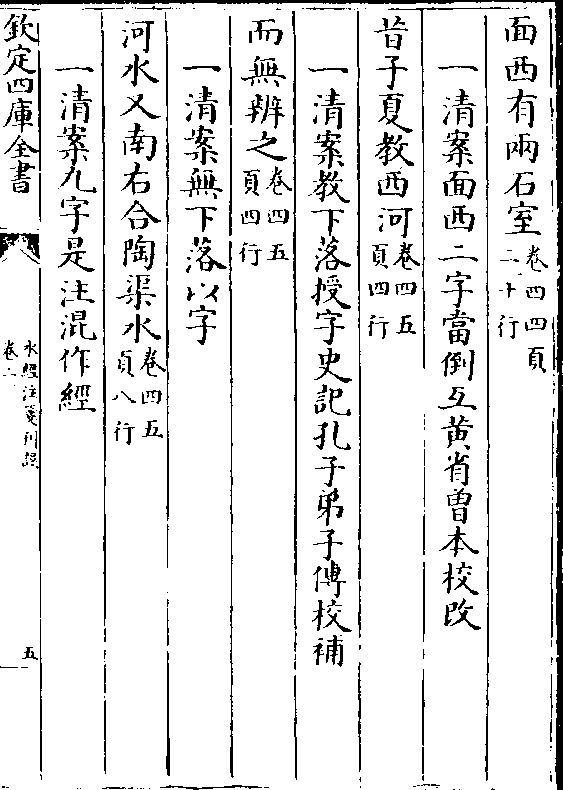 面西有兩石室卷四四頁二十行
一清案面西二字當倒互黄省曽本校改
昔子夏教西河卷四五頁四行
一清案教下落授字史記孔子弟子傳校補
而無辨之卷四五頁四行
一清案無下落以字
河水又南右合陶渠水卷四五頁八行
一清案九字是注混作經
欽定四庫全書
水經注箋刊誤
卷二
五